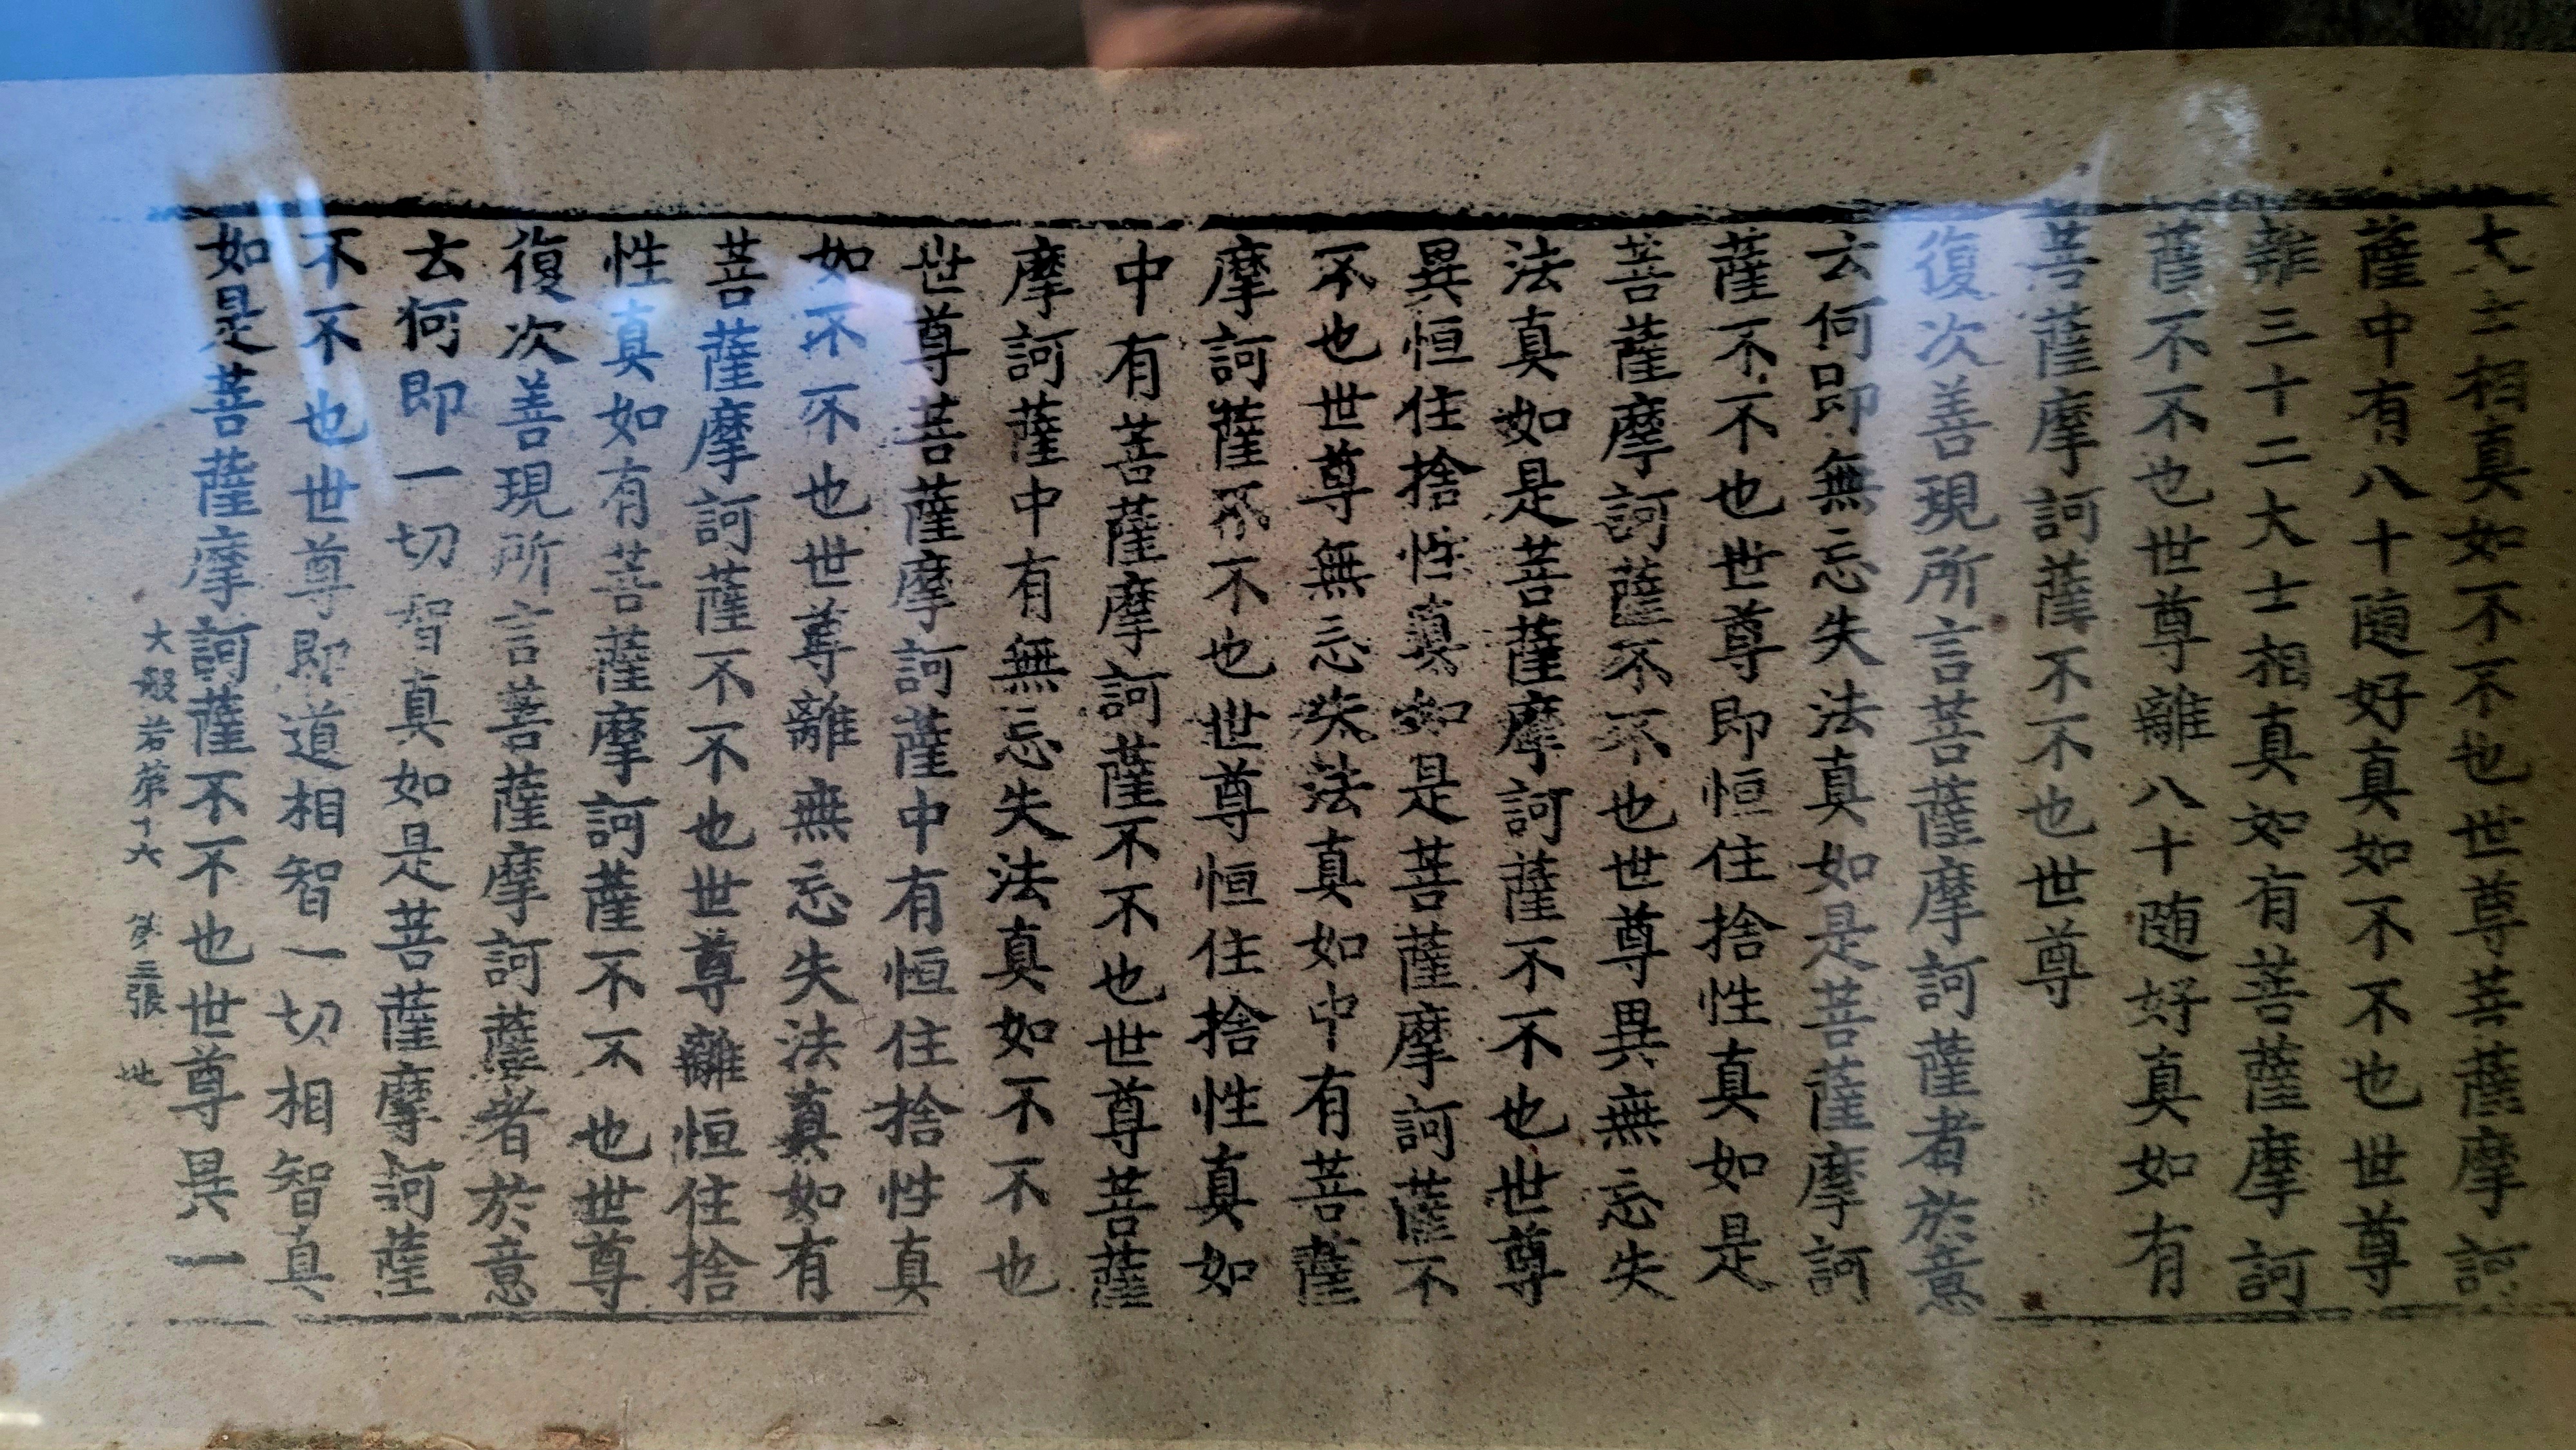 大士相真如不不也世尊菩薩摩訶
薩中有八十随好真如不不也世尊
離三十二大士相真如有菩薩摩訶
薩不不也世尊離八十随好真如有
菩薩摩訶薩不不也世尊
復次善現所言菩薩摩訶薩者於意
云何即無忘失法真如是菩薩摩訶
薩不不也世尊即恒住捨性真如是
菩薩摩訶薩不不也世尊異無忘失
法真如是菩薩摩訶薩不不也世尊
異恒住捨性真如是菩薩摩訶薩不
不也世尊無忘失法真如中有菩薩
摩訶薩不不也世尊恒住捨性真如
中有菩薩摩訶薩不不也世尊菩薩
摩訶薩中有無忘失法真如不不也
世尊菩薩摩訶薩中有恒住捨性真
如不不也世尊離無忘失法真如有
菩薩摩訶薩不不也世尊離恒住捨
性真如有菩薩摩訶薩不不也世尊
復次善現所言菩薩摩訶薩者於意
云何即一切智真如是菩薩摩訶薩
不不也世尊即道相智一切相智真
如是菩薩摩訶薩不不也世尊異一
大般若第十六 第三張 地